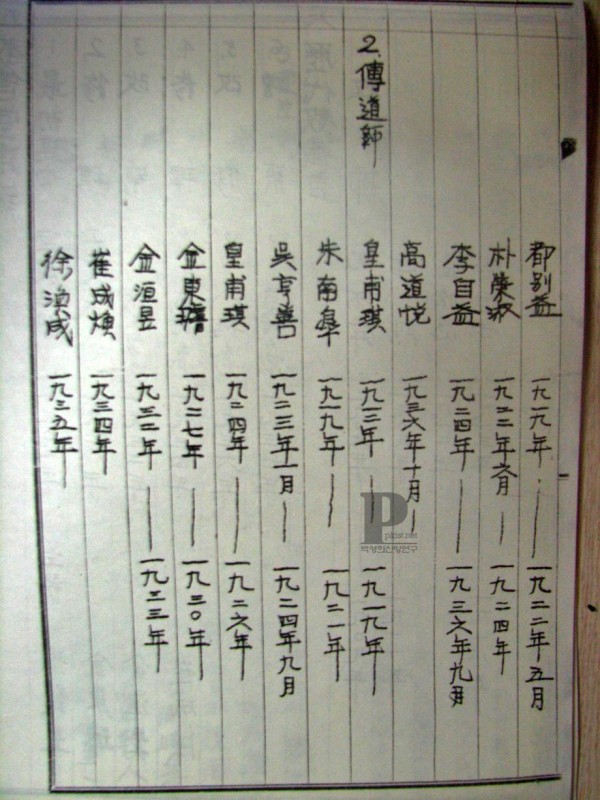 都別益 一九一九年・——一九二二年五月
朴榮淑 一九二二年六月——一九二四年
李自益 一九二四年——一九三六年九月
高道悅 一九三六年十月——
2. 傳道師
皇甫琪 一九一三年——一九一九年
朱南皐 一九一九年——一九二一年
吳亨善 一九二三年一月——一九二四年九月
皇甫琪 一九二四年——一九二六年
金東 一九二七年——一九三〇年
金洹昱 一九三二年——一九三三年
崔成煥 一九三四年
徐 成 一九三五年——
P
pkist.net
박창희신앙연구